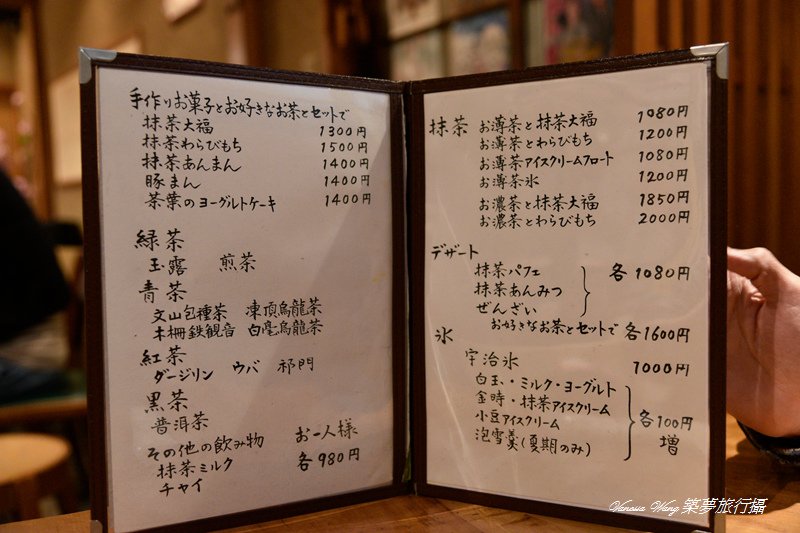 手作りお菓子とお好きなお茶とセットで
抹茶大福 1300円
抹茶わらびもち 1500円
抹茶あんまん 1400円
豚まん 1400円
茶葉のヨーグルトケーキ 1400円
緑茶
玉露 煎茶
青茶
文山包種茶 凍頂烏龍茶
木柵鉄観音 白毫烏龍茶
紅茶
ダージリン ウバ 祁門
黒茶
普洱茶
その他の飲み物 お一人様
抹茶ミルク 各980円
チャイ
抹茶 お薄茶と抹茶大福 1080円
お薄茶とわらびもち 1200円
お薄茶アイスクリームフロート 1080円
お薄茶氷 1200円
お濃茶と抹茶大福 1850円
お濃茶とわらびもち 2000円
デザート
抹茶パフェ 各1080円
抹茶あんみつ
ぜんざい
お好きなお茶とセットで 各1600円
氷
宇治氷 1000円
白玉・ミルク・ヨーグルト
金時・抹茶アイスクリーム
小豆アイスクリーム 各100円
泡雪羹(夏期のみ) 増
Vanessa Wang 築夢旅行攝